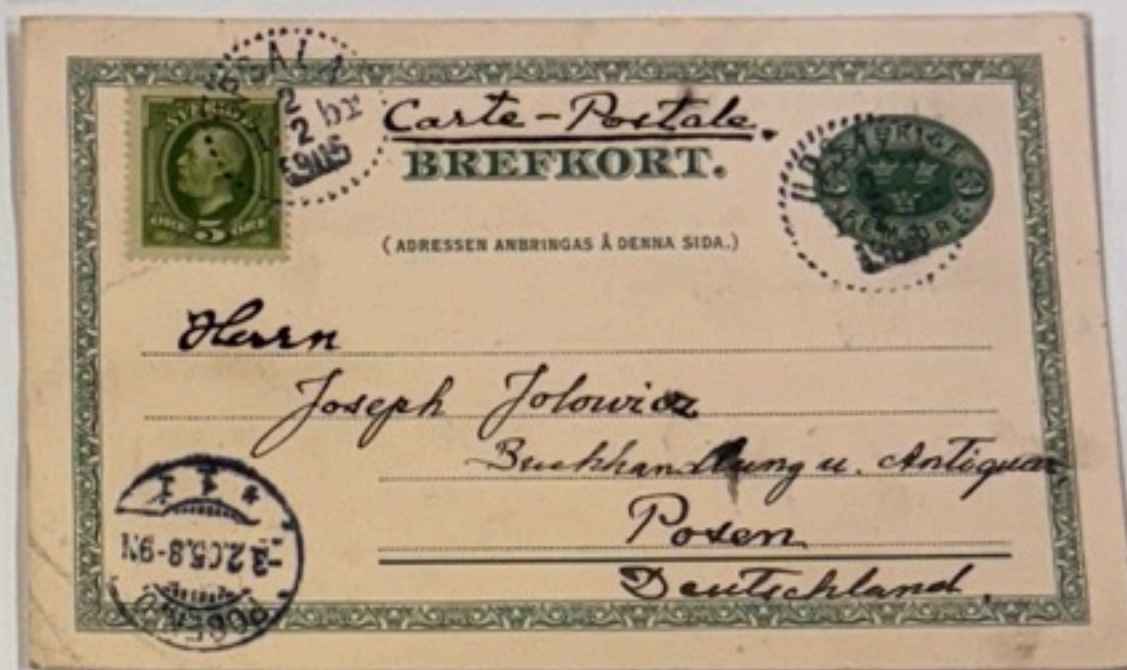 UPSALA
2
2 br
1905
SVERIGE
5
Carte-Postale.
BREFKORT.
SVERIGE
FEM ÖRE
(ADRESSEN ANBRINGAS Å DENNA SIDA.)
Herrn
Joseph Jolowicz
Buchhandlung u. Antiquar
Posen
Deutschland.
-3.2.05.8-9N
POSEN